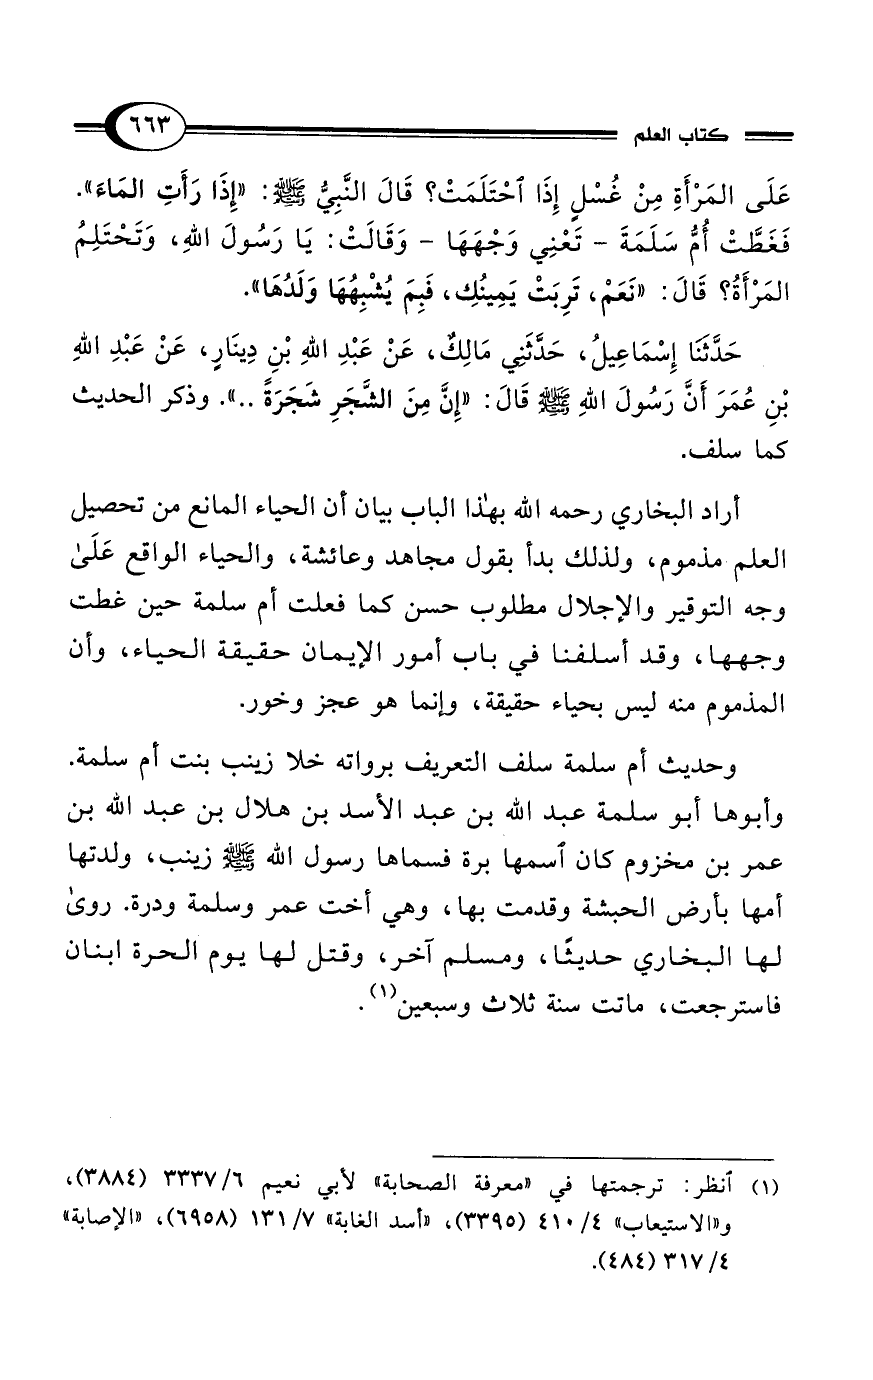 كتاب العلم ٦٦٣
عَلَى المَرْأَةِ مِنْ غُسْلٍ إِذَا ٱحْتَلَمَتْ؟ قَالَ النَّبِيُّ ﷺ: «إِذَا رَأَتِ المَاءَ».
فَغَطَّتْ أُمُّ سَلَمَةَ - تَعْنِي وَجْهَهَا - وَقَالَتْ: يَا رَسُولَ اللهِ، وَتَحْتَلِمُ
المَرْأَةُ؟ قَالَ: «نَعَمْ، تَرِبَتْ يَمِينُكِ، فَبِمَ يُشْبِهُهَا وَلَدُهَا».
حَدَّثَنَا إِسْمَاعِيلُ، حَدَّثَنِي مَالِكٌ، عَنْ عَبْدِ اللهِ بْنِ دِينَارٍ، عَنْ عَبْدِ اللهِ
بْنِ عُمَرَ أَنَّ رَسُولَ اللهِ ﷺ قَالَ: «إِنَّ مِنَ الشَّجَرِ شَجَرَةً ..». وذكر الحديث
كما سلف.
أراد البخاري رحمه الله بهٰذا الباب بيان أن الحياء المانع من تحصيل
العلم مذموم، ولذلك بدأ بقول مجاهد وعائشة، والحياء الواقع عَلَىٰ
وجه التوقير والإجلال مطلوب حسن كما فعلت أم سلمة حين غطت
وجهها، وقد أسلفنا في باب أمور الإيمان حقيقة الحياء، وأن
المذموم منه ليس بحياء حقيقة، وإنما هو عجز وخور.
وحديث أم سلمة سلف التعريف برواته خلا زينب بنت أم سلمة.
وأبوها أبو سلمة عبد الله بن عبد الأسد بن هلال بن عبد الله بن
عمر بن مخزوم كان ٱسمها برة فسماها رسول الله ﷺ زينب، ولدتها
أمها بأرض الحبشة وقدمت بها، وهي أخت عمر وسلمة ودرة. روىٰ
لها البخاري حديثًا، ومسلم آخر، وقتل لها يوم الحرة ابنان
فاسترجعت، ماتت سنة ثلاث وسبعين(١).
(١) ٱنظر: ترجمتها في «معرفة الصحابة» لأبي نعيم ٦/ ٣٣٣٧ (٣٨٨٤)،
و«الاستيعاب» ٤/ ٤١٠ (٣٣٩٥)، «أسد الغابة» ٧/ ١٣١ (٦٩٥٨)، «الإصابة»
٤/ ٣١٧ (٤٨٤).